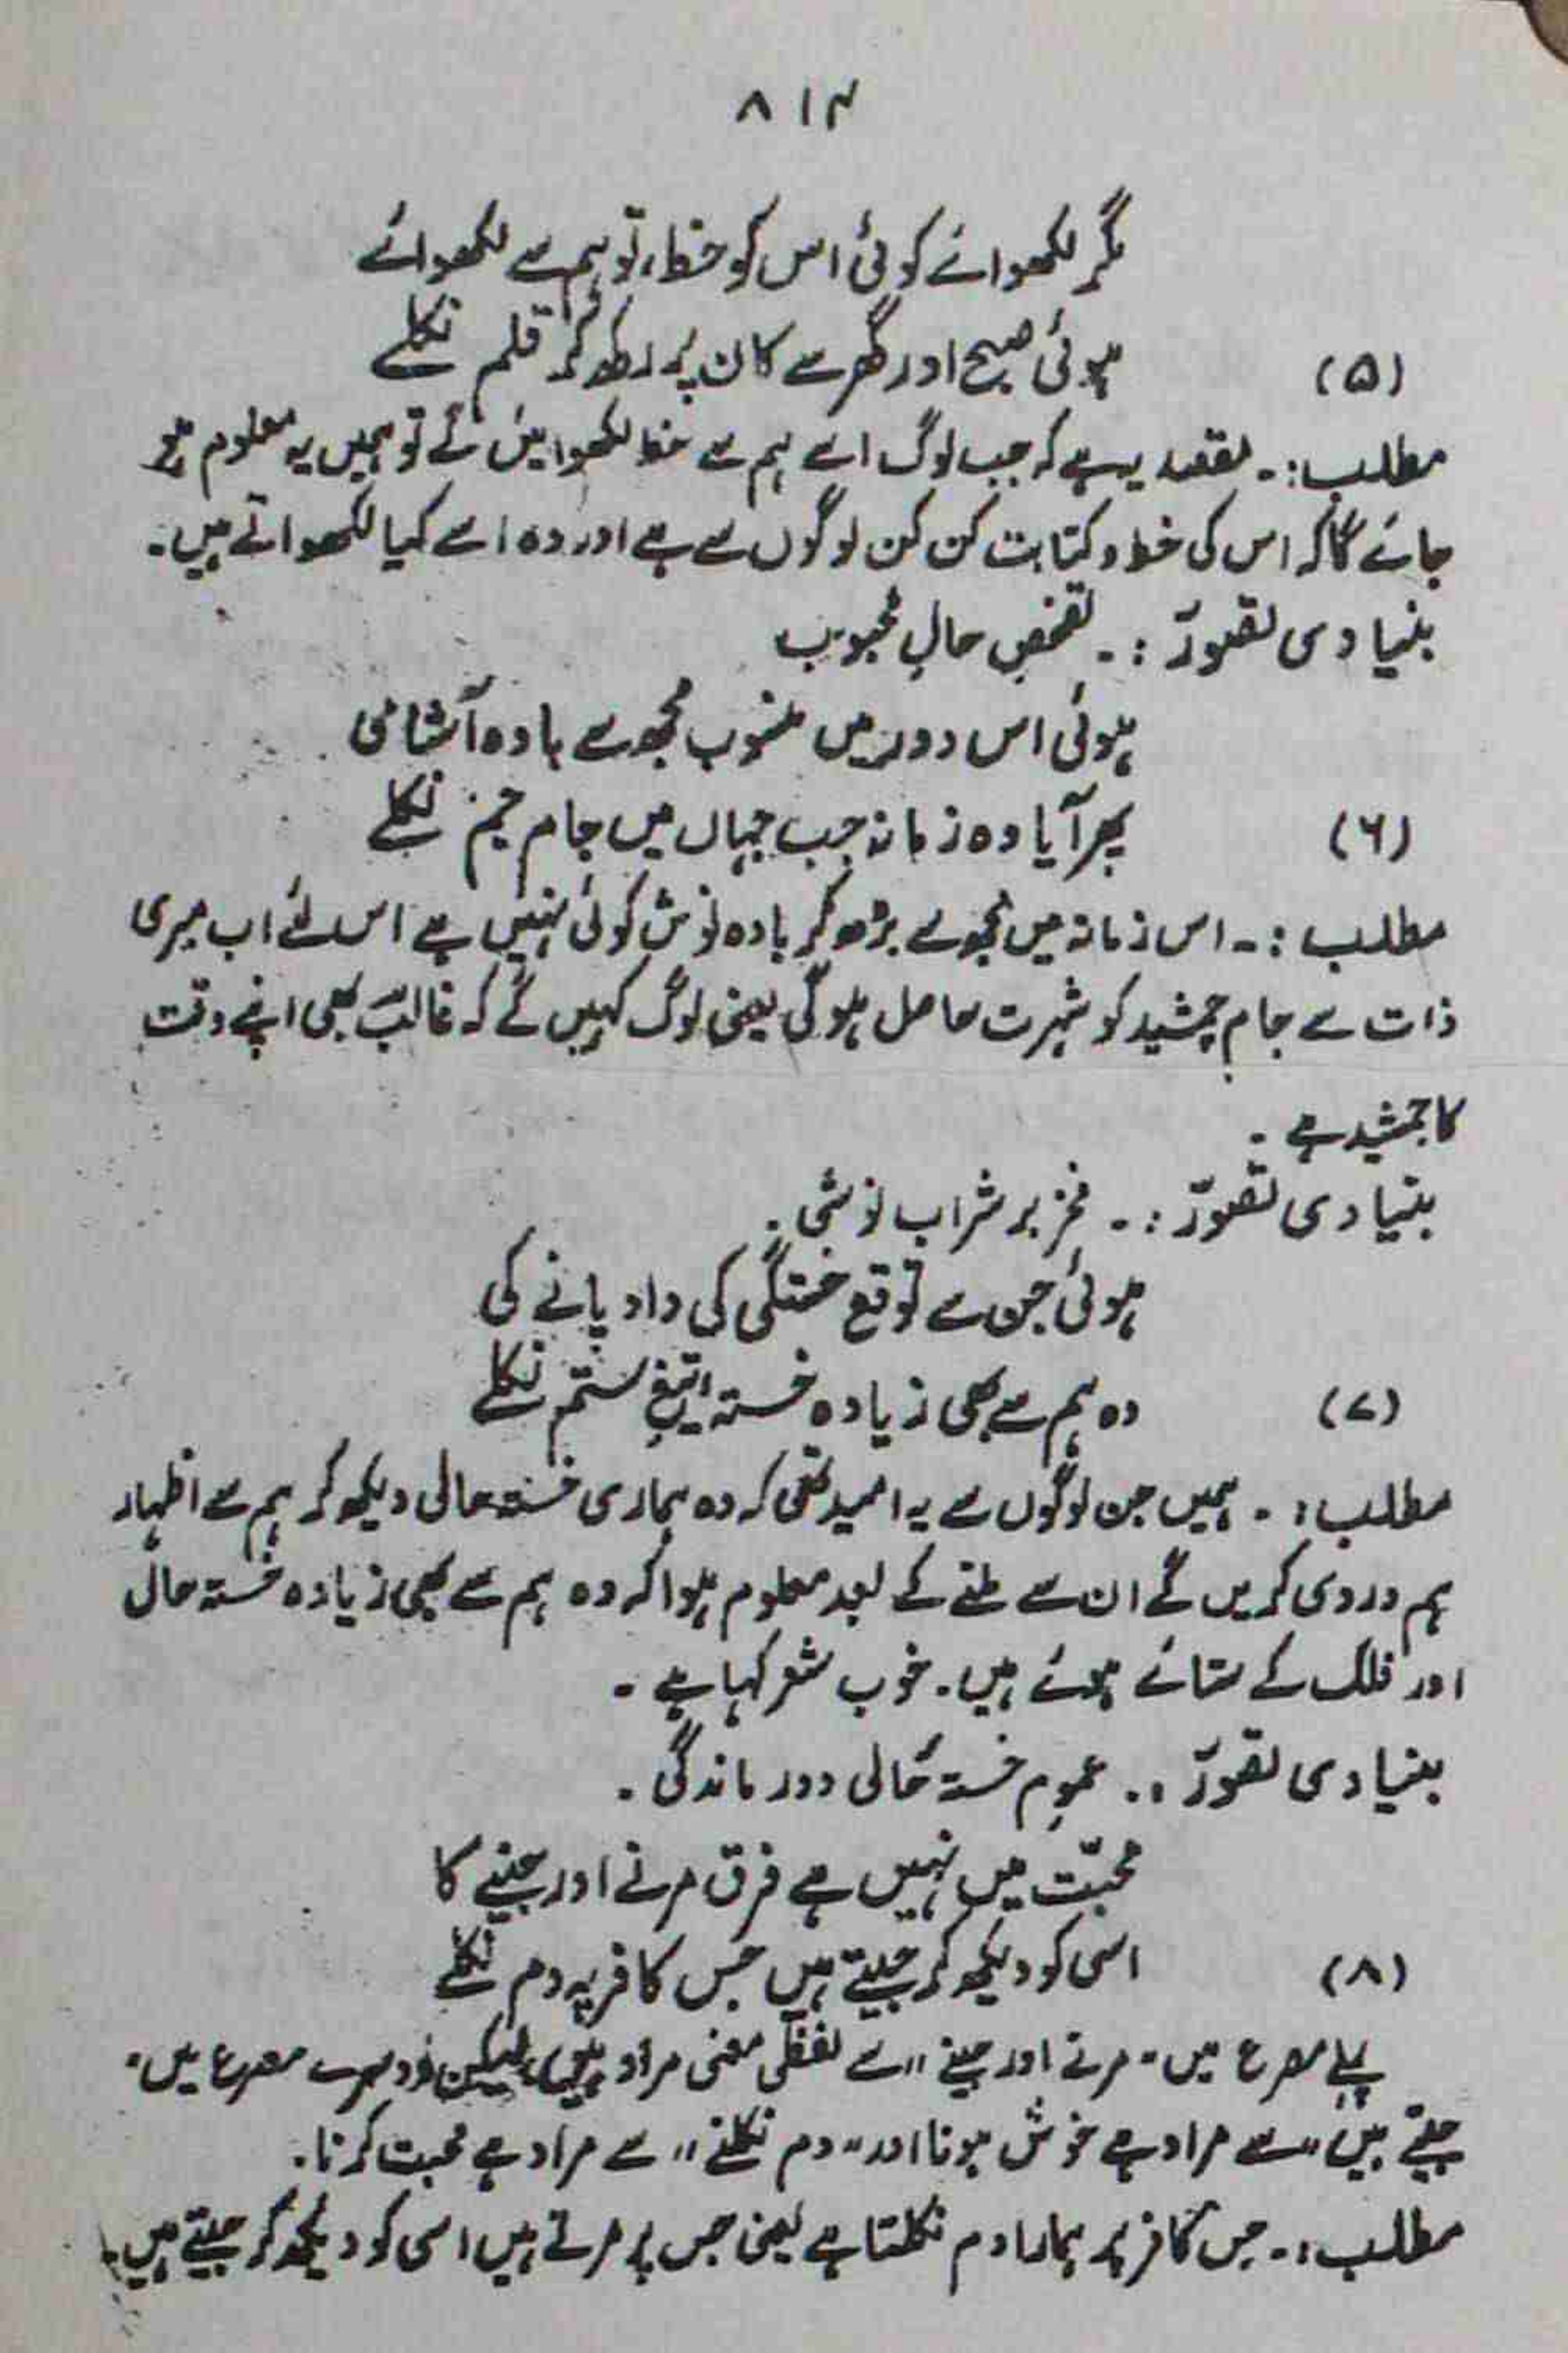 ۸۱۴
مگر لکھوائے کوئی اس کو خط، تو ہم سے لکھوائے
ہوئی صبح اور گھر سے کان پر رکھ کر قلم نکلے (۵)
مطلب:۔ مقصد یہ ہے کہ جب لوگ اسے ہم سے خط لکھوائیں گے تو ہمیں یہ معلوم ہو
جائے گا کہ اس کی خط و کتابت کن کن لوگوں سے ہے اور وہ اسے کیا لکھواتے ہیں۔
بنیادی تصوّر :۔ تفحصِ حالِ محبوب
ہوئی اس دور میں منسوب مجھ سے بادہ آشامی
پھر آیا وہ زمانہ جب جہاں میں جامِ جم نکلے (۶)
مطلب :۔ اس زمانہ میں مجھ سے بڑھ کر بادہ نوش کوئی نہیں ہے اس لئے اب میری
ذات سے جامِ جمشید کو شہرت حاصل ہوگی یعنی لوگ کہیں گے کہ غالبؔ بھی اپنے وقت
کا جمشید ہے ۔
بنیادی تصوّر :۔ فخر بر شراب نوشی ۔
ہوئی جن سے توقع خستگی کی داد پانے کی
وہ ہم سے بھی زیادہ خستۂ تیغِ ستم نکلے (۷)
مطلب :۔ ہمیں جن لوگوں سے یہ امید تھی کہ وہ ہماری خستہ حالی دیکھ کر ہم سے اظہار
ہم دردی کریں گے ان سے ملنے کے بعد معلوم ہوا کہ وہ ہم سے بھی زیادہ خستہ حال
اور فلک کے ستائے ہوئے ہیں۔ خوب شعر کہا ہے ۔
بنیادی تصوّر :۔ عمومِ خستہ حالی و درماندگی ۔
محبّت میں نہیں ہے فرق مرنے اور جینے کا
اسی کو دیکھ کر جیتے ہیں جس کافر پہ دم نکلے (۸)
پہلے مصرع میں "مرنے اور جینے" سے لفظی معنی مراد ہیں، لیکن دوسرے مصرع میں "
جیتے ہیں" سے مراد ہے خوش ہونا اور "دم نکلنے" سے مراد ہے محبت کرنا۔
مطلب :۔ جس کافر پر ہمارا دم نکلتا ہے یعنی جس پر مرتے ہیں اسی کو دیکھ کر جیتے ہیں